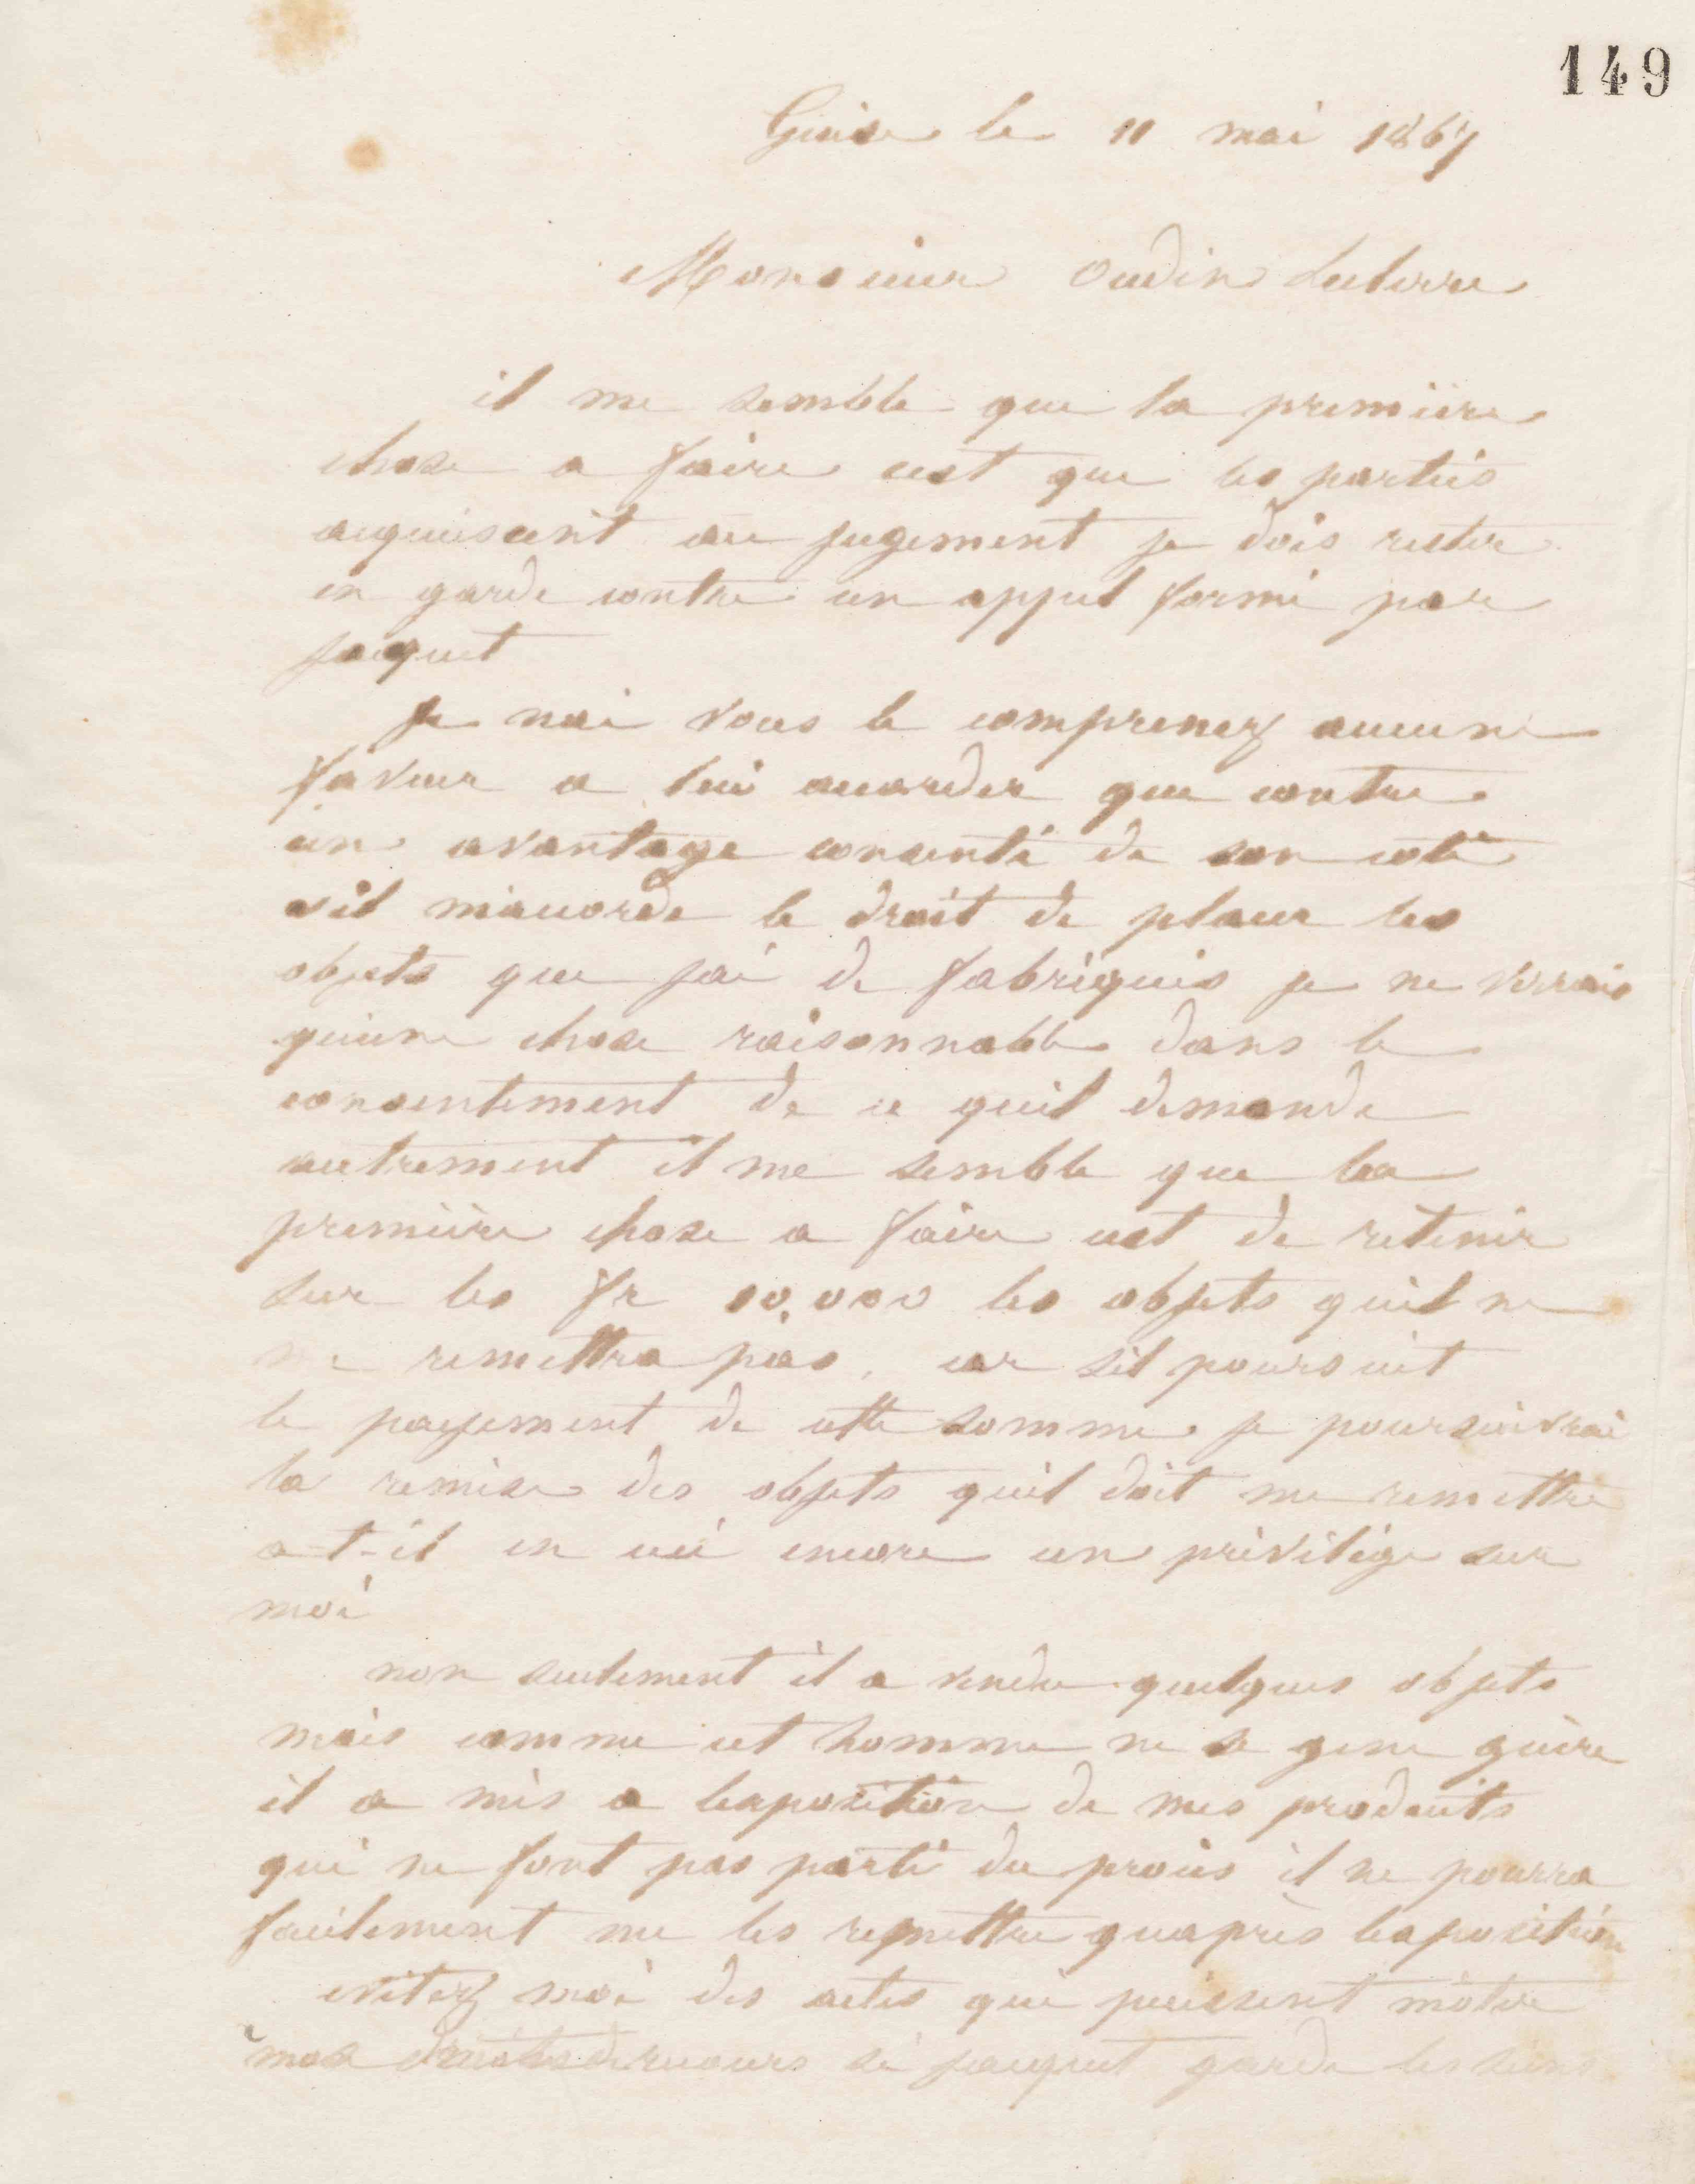 149
Guise le 11 mai 1867
Monsieur Oudin Leclerre
il me semble que la première
chose a faire cest que les parties
acquiscent au jugement je dois rester
en garde contre un appel formé par
jacquet
Je nai vous le comprenez aucune
faveur a lui accorder que contre
un avantage consenti de son coté
sil maccorde le droit de placer les
objets que jai de fabriqués je ne verrais
quune chose raisonnable dans le
consentement de ce quil demande
autrement il me semble que la
première chose a faire cest de retenir
sur les fr 10,000 les objets quil ne
me remettra pas, car sil poursuit
le payement de cette somme je poursuivrai
la remise des objets quil doit me remettre
a-t-il en ceci encore un privilège sur
moi
non seulement il a vendu quelques objets
mais comme cet homme ne se gene guère
il a mis a lexposition de mes produits
qui ne font pas parti du procès il ne pourra
facilement me les remettre quaprès lexposition
evitez moi des actes qui puissent moter
mes de recours si jacquet garde les siens